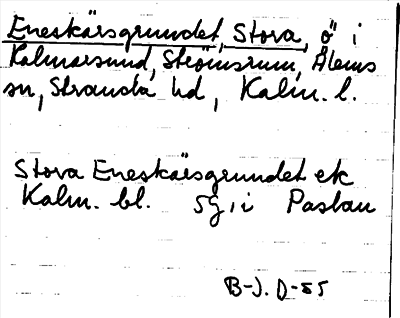 Eneskärsgrundet, Stora, ö i
Kalmarsund, Strömsrum, Ålems
sn, Stranda hd, Kalm. l.
Stora Eneskärsgrundet ek
Kalm. bl. 5g, i Pastan
B-J. D-55